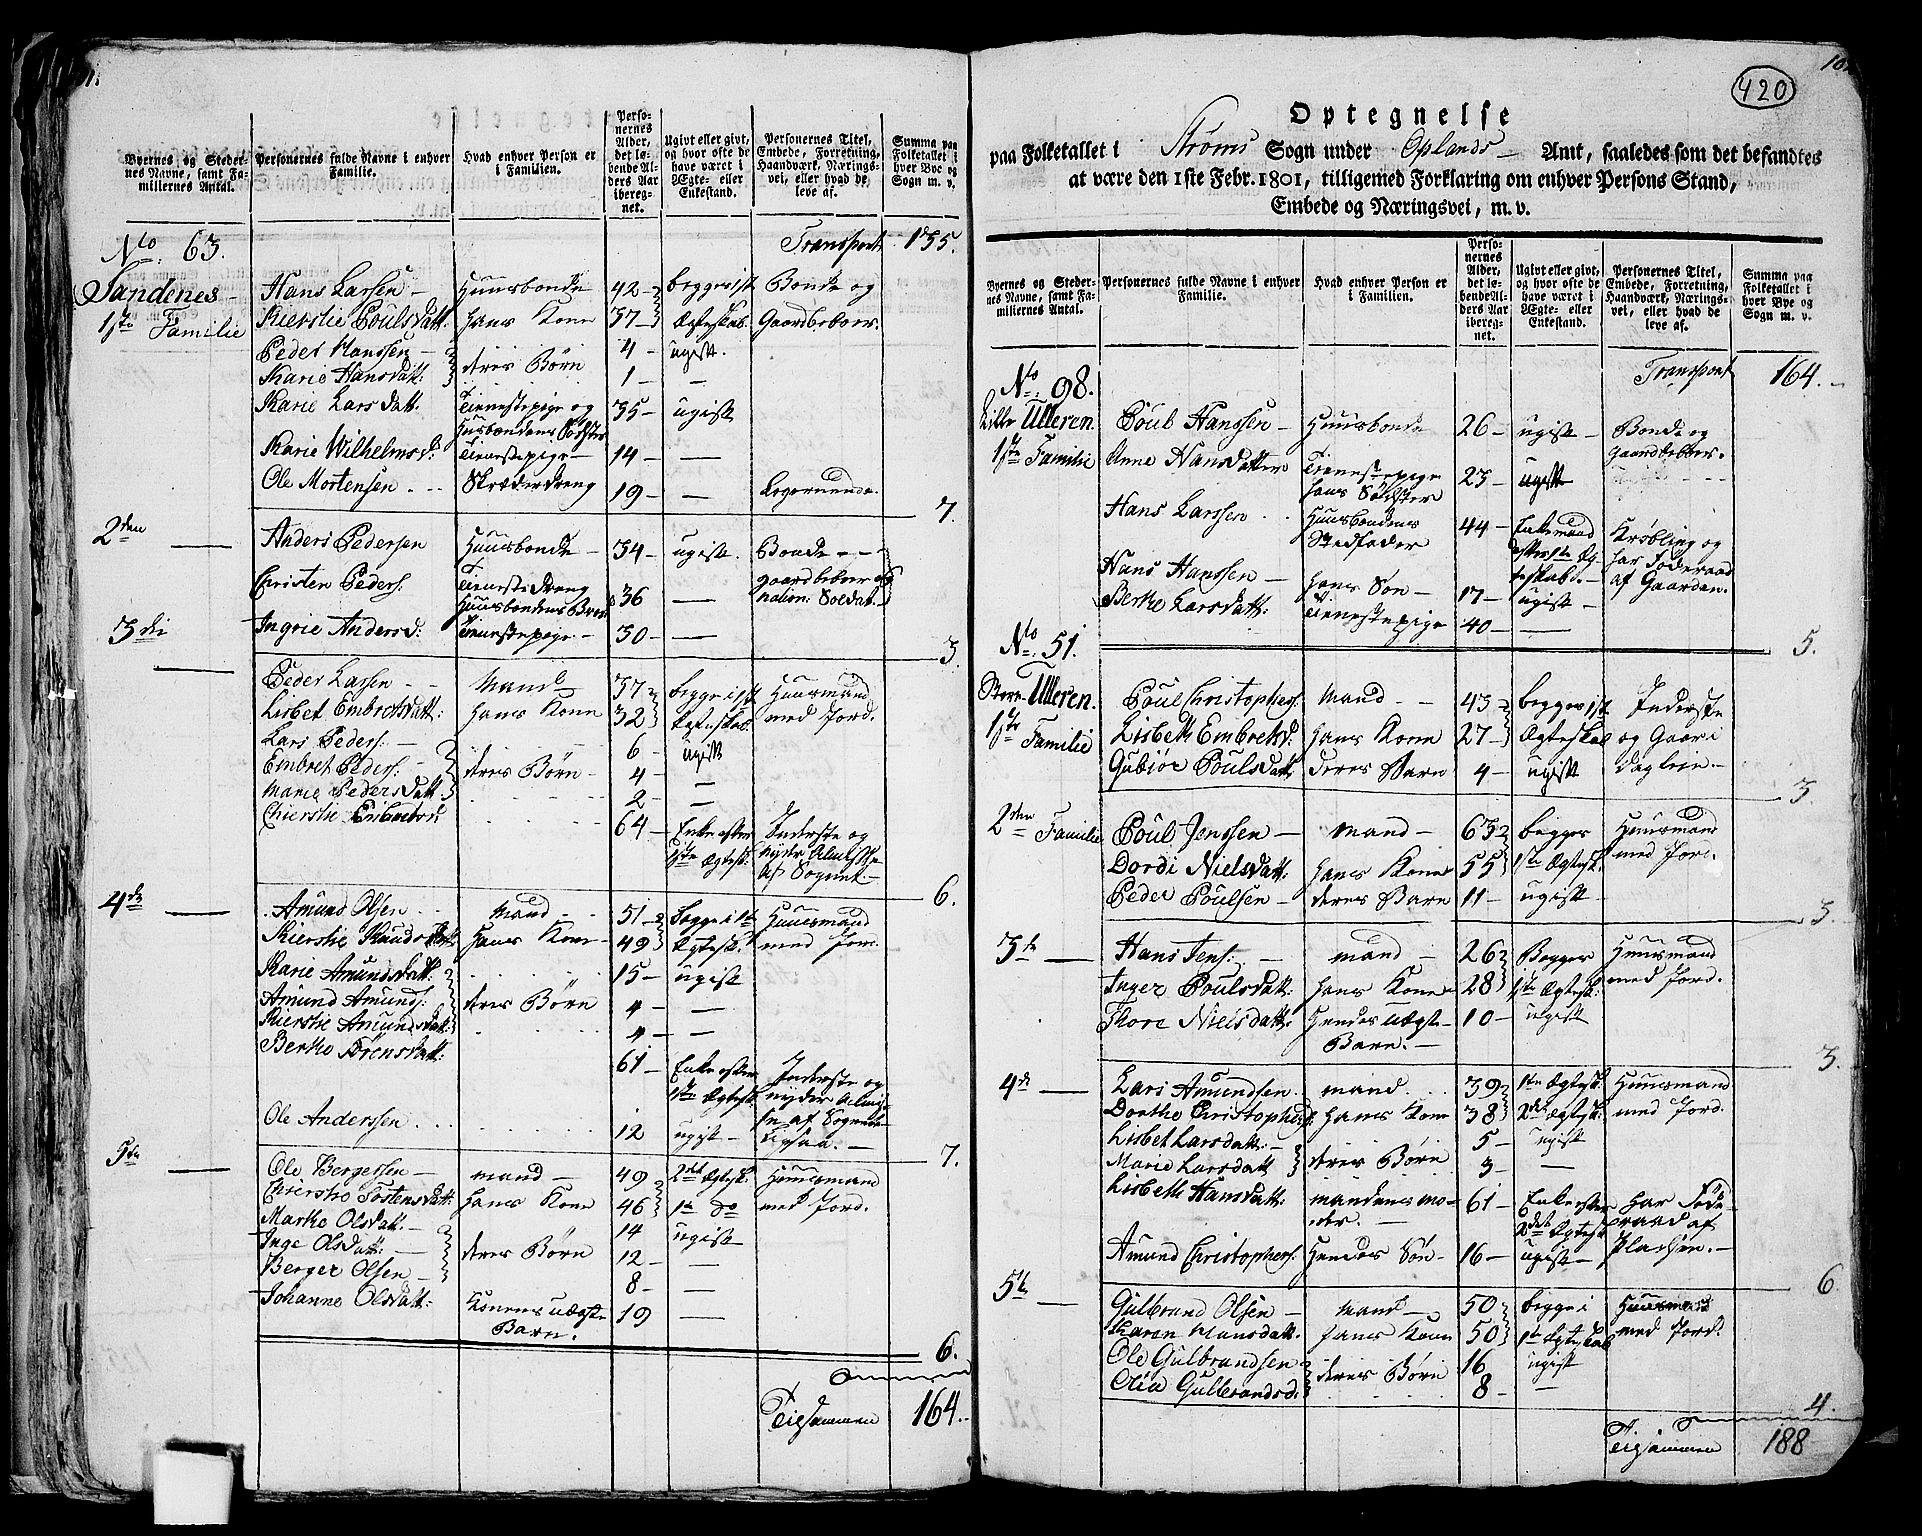 Byernes og Steder-
nes Navne, samt Fa-
miliernes Antal.
Personernes fulde Navne i enhver
Familie.
Hvad enhver Person er
i Familien.
Perso-
nernes
Alder,
det lø-
bende Al-
ders Aar
iberegnet.
Ugivt eller givt,
og hvor ofte de
have været i
Ægte- eller
Enkestand.
Personernes Titel,
Embede, Forretning,
Haandværk, Nærings-
vei, eller hvad de
leve af.
Summa paa
Folketallet i
hver Bye og
Sogn m. v.
No. 63. Transport 135.
Sandenes Hans Larsen Huusbonde 42 begge i 1st Bonde og
1ste Familie Kierstie Poulsdatt. hans Kone 37 Ægteskab. Gaardbeboer.
Peder Hanssen deres Børn 4 ugift.
Marie Hansdatt: 1 —
Marie Larsdatt. Tienestepige og Husbondens Søster 35 ugift
Marie Wilhelmsd: Tienestepige 14 —
Ole Mortensen Skræderdreng 19 — Logerende.
7.
2den Anders Pedersen Huusbonde 34 ugift. Bonde
Christen Peders: Tienestedreng Huusbondens Broder 36 — gaardbeboer og nation: Soldat.
Ingrie Andersd: Tienestepige 30 —
3.
3die Peder Larsen Mand 37 begge i 1st Huusmand
Lisbet Embretsdatt: hans Kone 32 Ægteskab. med Jord.
Lars Peders: 6 ugift
Embret Peders: deres Børn 4 —
Marie Pedersdatt 2 —
Chierstie 64 Enke efter 1ste Ægtesk: Inderste og nyder Almisse af Sognet.
6.
4de Amund Olsen Mand 51 begge i 1st Huusmand
Kierstie Knudsdatt hans Kone 49 Ægtesk: med Jord.
Marie Amundsdatt: 15 ugift
Amund Amunds: deres Børn 4 —
Kierstie Amundsdatt: 4 —
Berthe Sørensdatt: 61 Enke efter 1ste Ægtesk: Inderste og nyder
Ole Anderssen 12 ugift ligesaa.
7.
5te Ole Bergersen mand 49 2det Ægtesk: Huusmand
Chierstie Tostensdatt: hans Kone 46 1te do med Jord.
Marthe Olsdatt. 14 ugift
Inge Olsdatt: deres Børn 12 —
Berger Olsen 8 —
Johanne Olsdatt: Konens uægte Barn. 19 —
6.
Tilsammen 164.
420
Optegnelse
paa Folketallet i Strøms Sogn under Oplands Amt, saaledes som det befandtes
at være den 1ste Febr. 1801, tilligemed Forklaring om enhver Persons Stand,
Embede og Næringsvei, m. v.
Byernes og Steder-
nes Navne, samt Fa-
miliernes Antal.
Personernes fulde Navne i enhver
Familie.
Hvad enhver Person er
i Familien.
Perso-
nernes
Alder,
det lø-
bende Al-
ders Aar
ibereg-
net.
Ugivt eller givt,
og hvor ofte de
have været i
Ægte- eller
Enkestand.
Personernes Titel,
Embede, Forretning,
Haandværk, Nærings-
vei, eller hvad de
leve af.
Summa paa
Folketallet i
hver Bye og
Sogn m. v.
Transport 164.
No. 98.
Lille Ulleren Poul Hanssen Huusbonde 26 ugift Bonde og
1ste Familie Anne Hansdatter Tienestepige hans Søster 23 ugift Gaardbeboer.
Hans Larssen Huusbondens Stedfader 44 Enkemand efter 1te Ægteskab. Krøbling og har Føderaad af Gaarden.
Hans Hanssen hans Søn 17 ugift
Berthe Larsdatt: Tienestepige 40 —
5.
No. 51.
Store Ulleren. Poul Christophers: Mand 43 begge i 1st Inderste
1ste Familie Lisbeth Embretsd: hans Kone 27 Ægteskab og Gaar i
Gubiør Poulsdatt. deres Barn 4 ugift dagleie
3.
2den Familie Poul Jenssen mand 63 begge Huusmand
Dordi Nielsdatt: hans Kone 55 1ste Ægtesk: med Jord.
Peder Poulsen deres Barn 11 ugift
3.
3te Hans Jens: mand 26 Begge Huusmand
Inger Poulsdatt. hans Kone 28 1ste Ægtesk: med Jord.
Thore Nielsdatt: hendes uægte Barn. 10 ugift
3.
4de Lars Amundsen mand 39 1ste Ægtesk: Huusmand
Dorthe Christophersd: hans Kone 38 2det Ægtesk: med Jord.
Lisbet Larsdatt: 5 ugift
Marie Larsdatt deres Børn 3 —
Lisbeth Hansdatt: mandens moder. 61 Enke efter 2det Ægtesk: har Føderaad af
Amund Christophers: hendes Søn 16 ugift Pladsen.
6.
5te Gulbrand Olsen Mand 50 begge i Huusmand
Karen Hansdatt. hans Kone 50 1te Ægteskab med Jord.
Ole Gulbrandsen deres Børn 16 ugift
Olia Gulbrandsd. 8 —
4.
Tilsammen 188